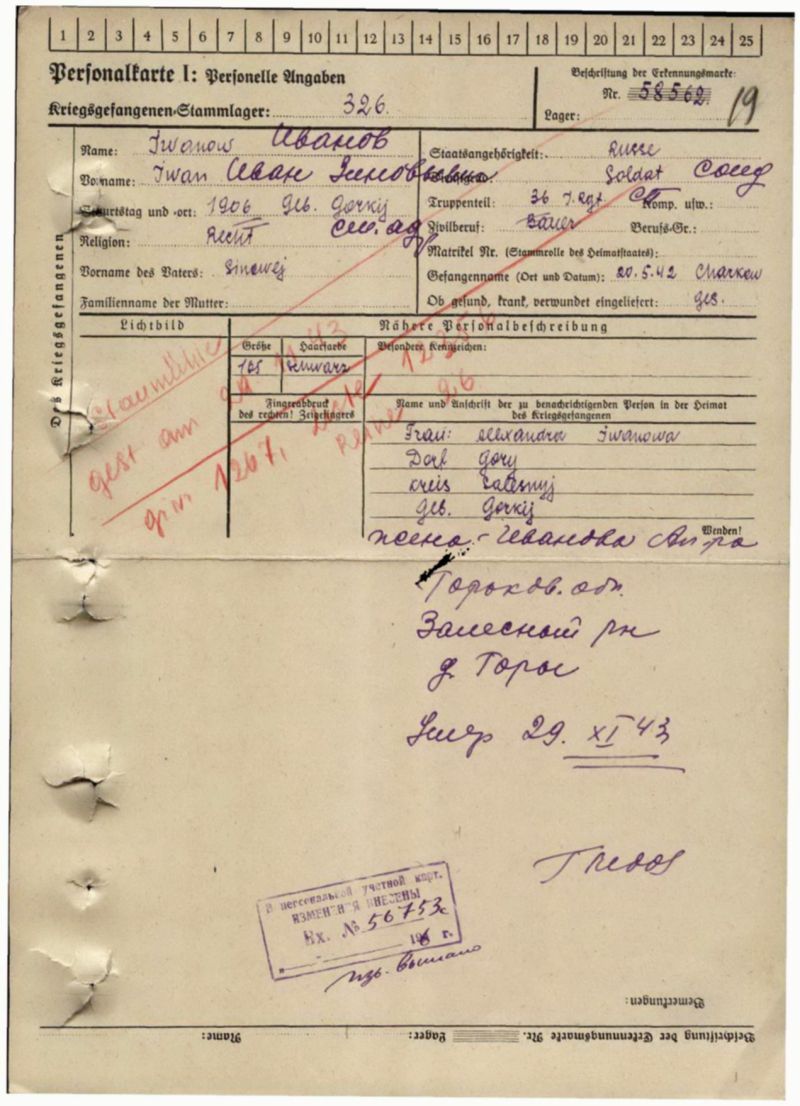 1 2 3 4 5 6 7 8 9 10 11 12 13 14 15 16 17 18 19 20 21 22 23 24 25
Personalkarte I: Personelle Angaben
Kriegsgefangenen-Stammlager: 326.
Beschriftung der Erkennungsmarke:
Nr. 58562
19
Lager:
Des Kriegsgefangenen
Name: Iwanow Иванов
Vorname: Iwan Иван Зиновьевич
Geburtstag und -ort: 1906 Geb. Gorkij
Religion:
Vorname des Vaters: Sinowej
Familienname der Mutter:
Staatsangehörigkeit: Russe
Soldat Солд
Truppenteil: 36 J. Rgt. Komp. usw.:
Zivilberuf: Bauer Berufs-Gr.:
Matrikel Nr. (Stammrolle des Heimatstaates):
Gefangenname (Ort und Datum): 20.5.42 Charkow
Ob gesund, krank, verwundet eingeliefert: ges.
Lichtbild
Nähere Personalbeschreibung
Größe Haarfarbe Besondere Kennzeichen:
165 schwarz
Fingerabdruck
des rechten! Zeigefingers
Name und Anschrift der zu benachrichtigenden Person in der Heimat
des Kriegsgefangenen
Frau: Alexandra Iwanowa
Dorf Gory
Kreis Salesnyj
Geb. Gorkij
Wenden!
Staumühle
gest am 29 11 43
Reihe 26
жена - Иванова Ал-ра
Горьков. обл.
Залесный рн
д. Горы
Умер 29. XI 43
В персональной учетной карт.
ИЗМЕНЕНИЯ ВНЕСЕНЫ
Вх. № 56753с
г.
изв. выслано
Bemerkungen:
Beschriftung der Erkennungsmarke Nr. Lager: Name: